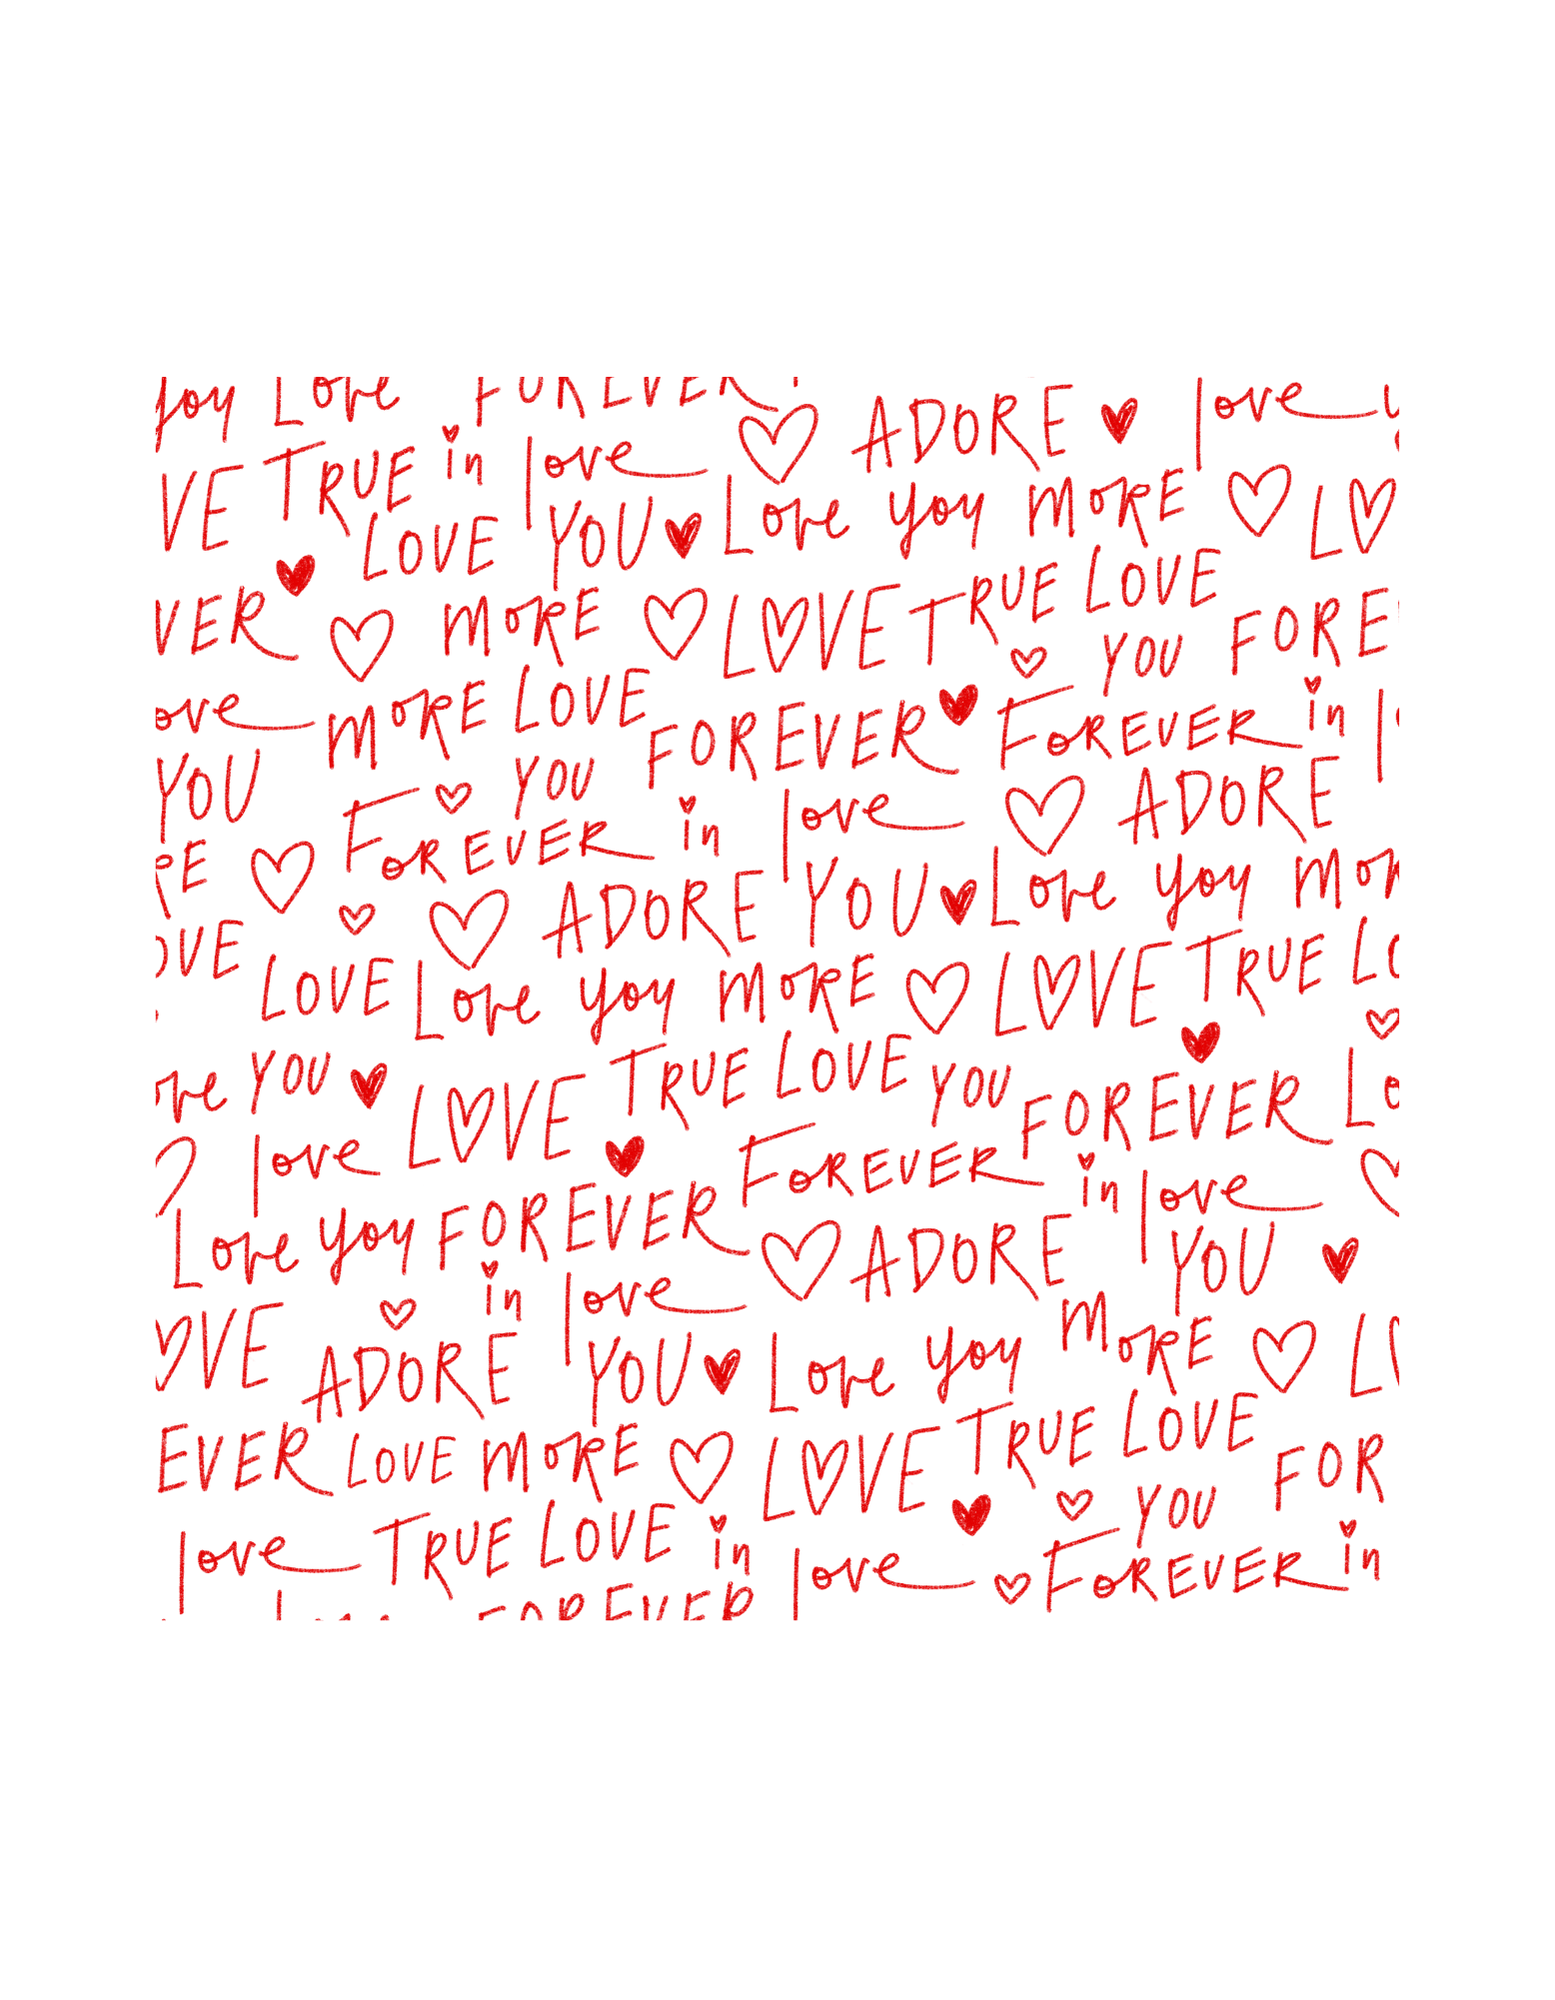 you Love FOREVER
ADORE love
VE TRUE in love
LOVE YOU Love you MORE LOVE
VER MORE LOVE TRUE LOVE
YOU FORE
ove MORE LOVE FOREVER FOREVER in
YOU YOU
FOREVER in love ADORE
RE ADORE YOU Love you MOR
OVE LOVE Love you MORE LOVE TRUE LO
ove YOU LOVE TRUE LOVE YOU FOREVER Lo
love FOREVER in love
Love you FOREVER ADORE YOU
in love
OVE ADORE YOU Love you MORE L
EVER LOVE MORE LOVE TRUE LOVE FOR
YOU
love TRUE LOVE in love FOREVER in
FOREVER